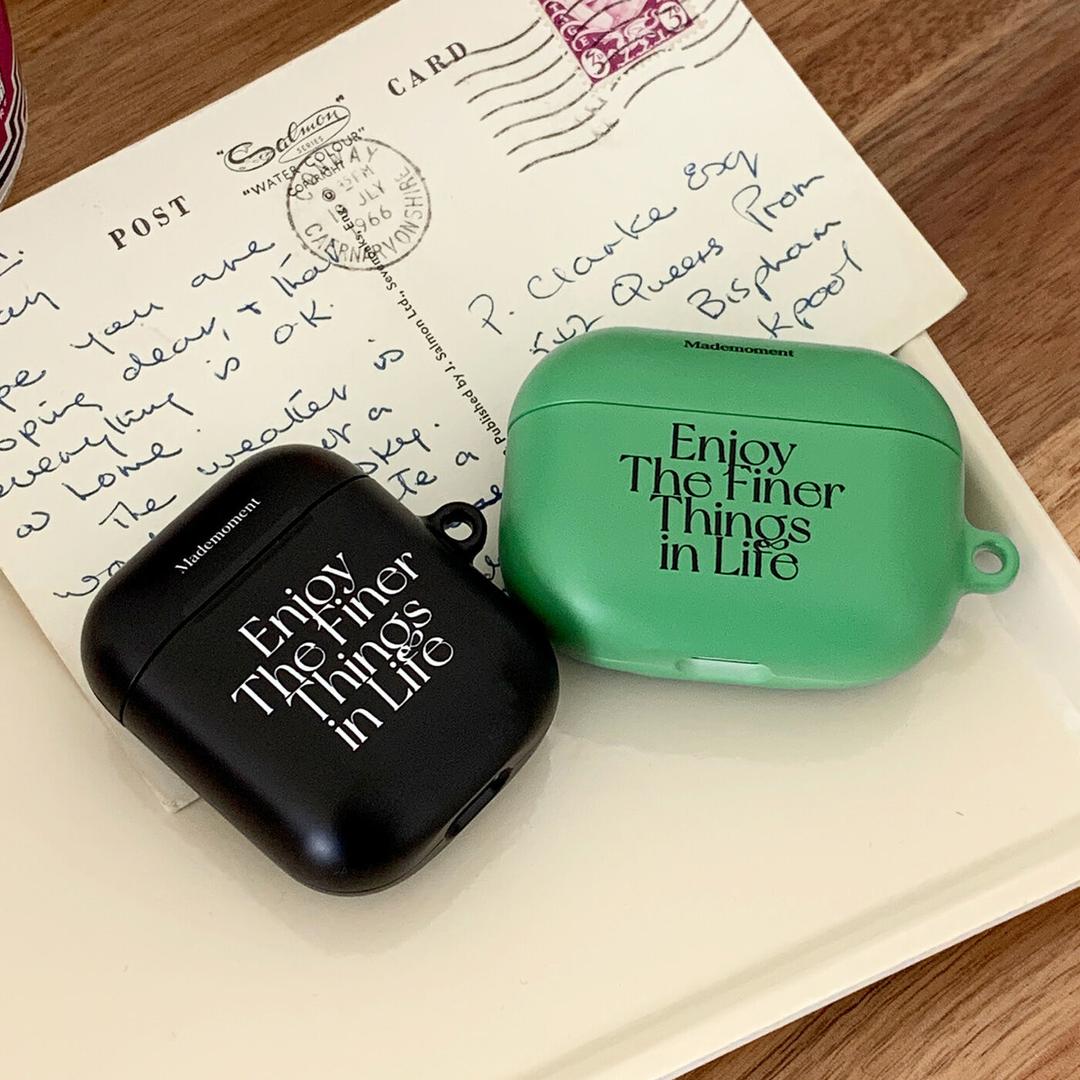 POST CARD
"Salmon"
SERIES
"WATER COLOUR"
COPYRIGHT
CONWAY
JLY
1966
CAERNARVONSHIRE
3D
3D
Published by J. Salmon Ltd., Sevenoaks, Eng.
you are
dear, + that
everything is OK.
home.
The weather is
a
sky.
a
P. Clarke Esq
542 Queens Prom
Bispham
kpool
Mademoment
Enjoy
The Finer
Things
in Life
Mademoment
Enjoy
The Finer
Things
in Life